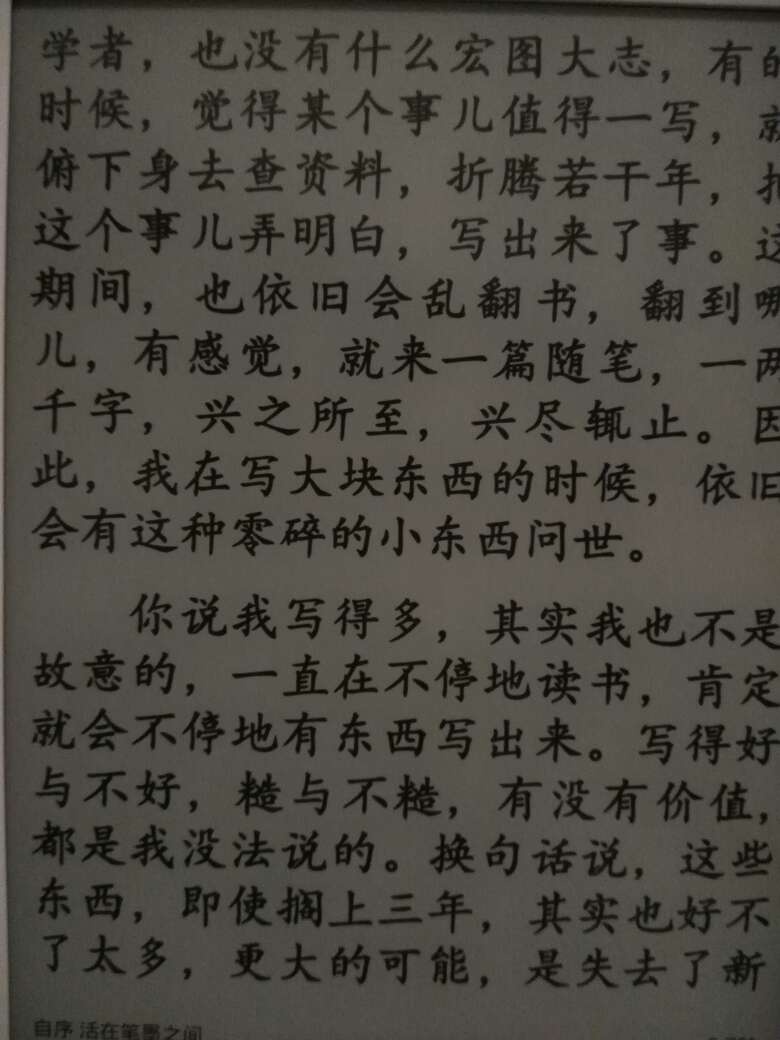 学者，也没有什么宏图大志，有的
时候，觉得某个事儿值得一写，就
俯下身去查资料，折腾若干年，把
这个事儿弄明白，写出来了事。这
期间，也依旧会乱翻书，翻到哪
儿，有感觉，就来一篇随笔，一两
千字，兴之所至，兴尽辄止。因
此，我在写大块东西的时候，依旧
会有这种零碎的小东西问世。
你说我写得多，其实我也不是
故意的，一直在不停地读书，肯定
就会不停地有东西写出来。写得好
与不好，糙与不糙，有没有价值，
都是我没法说的。换句话说，这些
东西，即使搁上三年，其实也好不
了太多，更大的可能，是失去了新
自序 活在笔墨之间